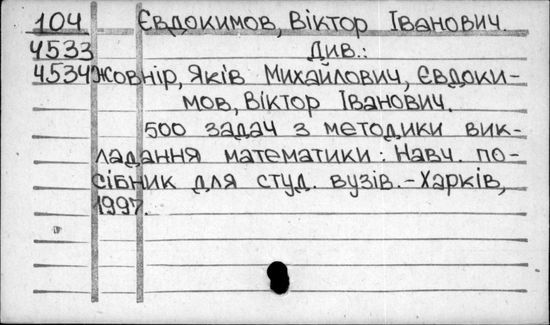 104 Євдокимов, Віктор Іванович.
4533 Див.:
4534 Жовнір, Яків Михайлович, Євдоки-
мов, Віктор Іванович.
500 задач з методики вик-
ладання математики: Навч. по-
сібник для студ. вузів.-Харків,
1997.